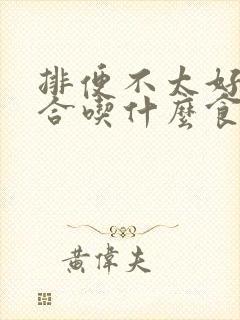 排便不太好
合喫什麼食
黃偉夫